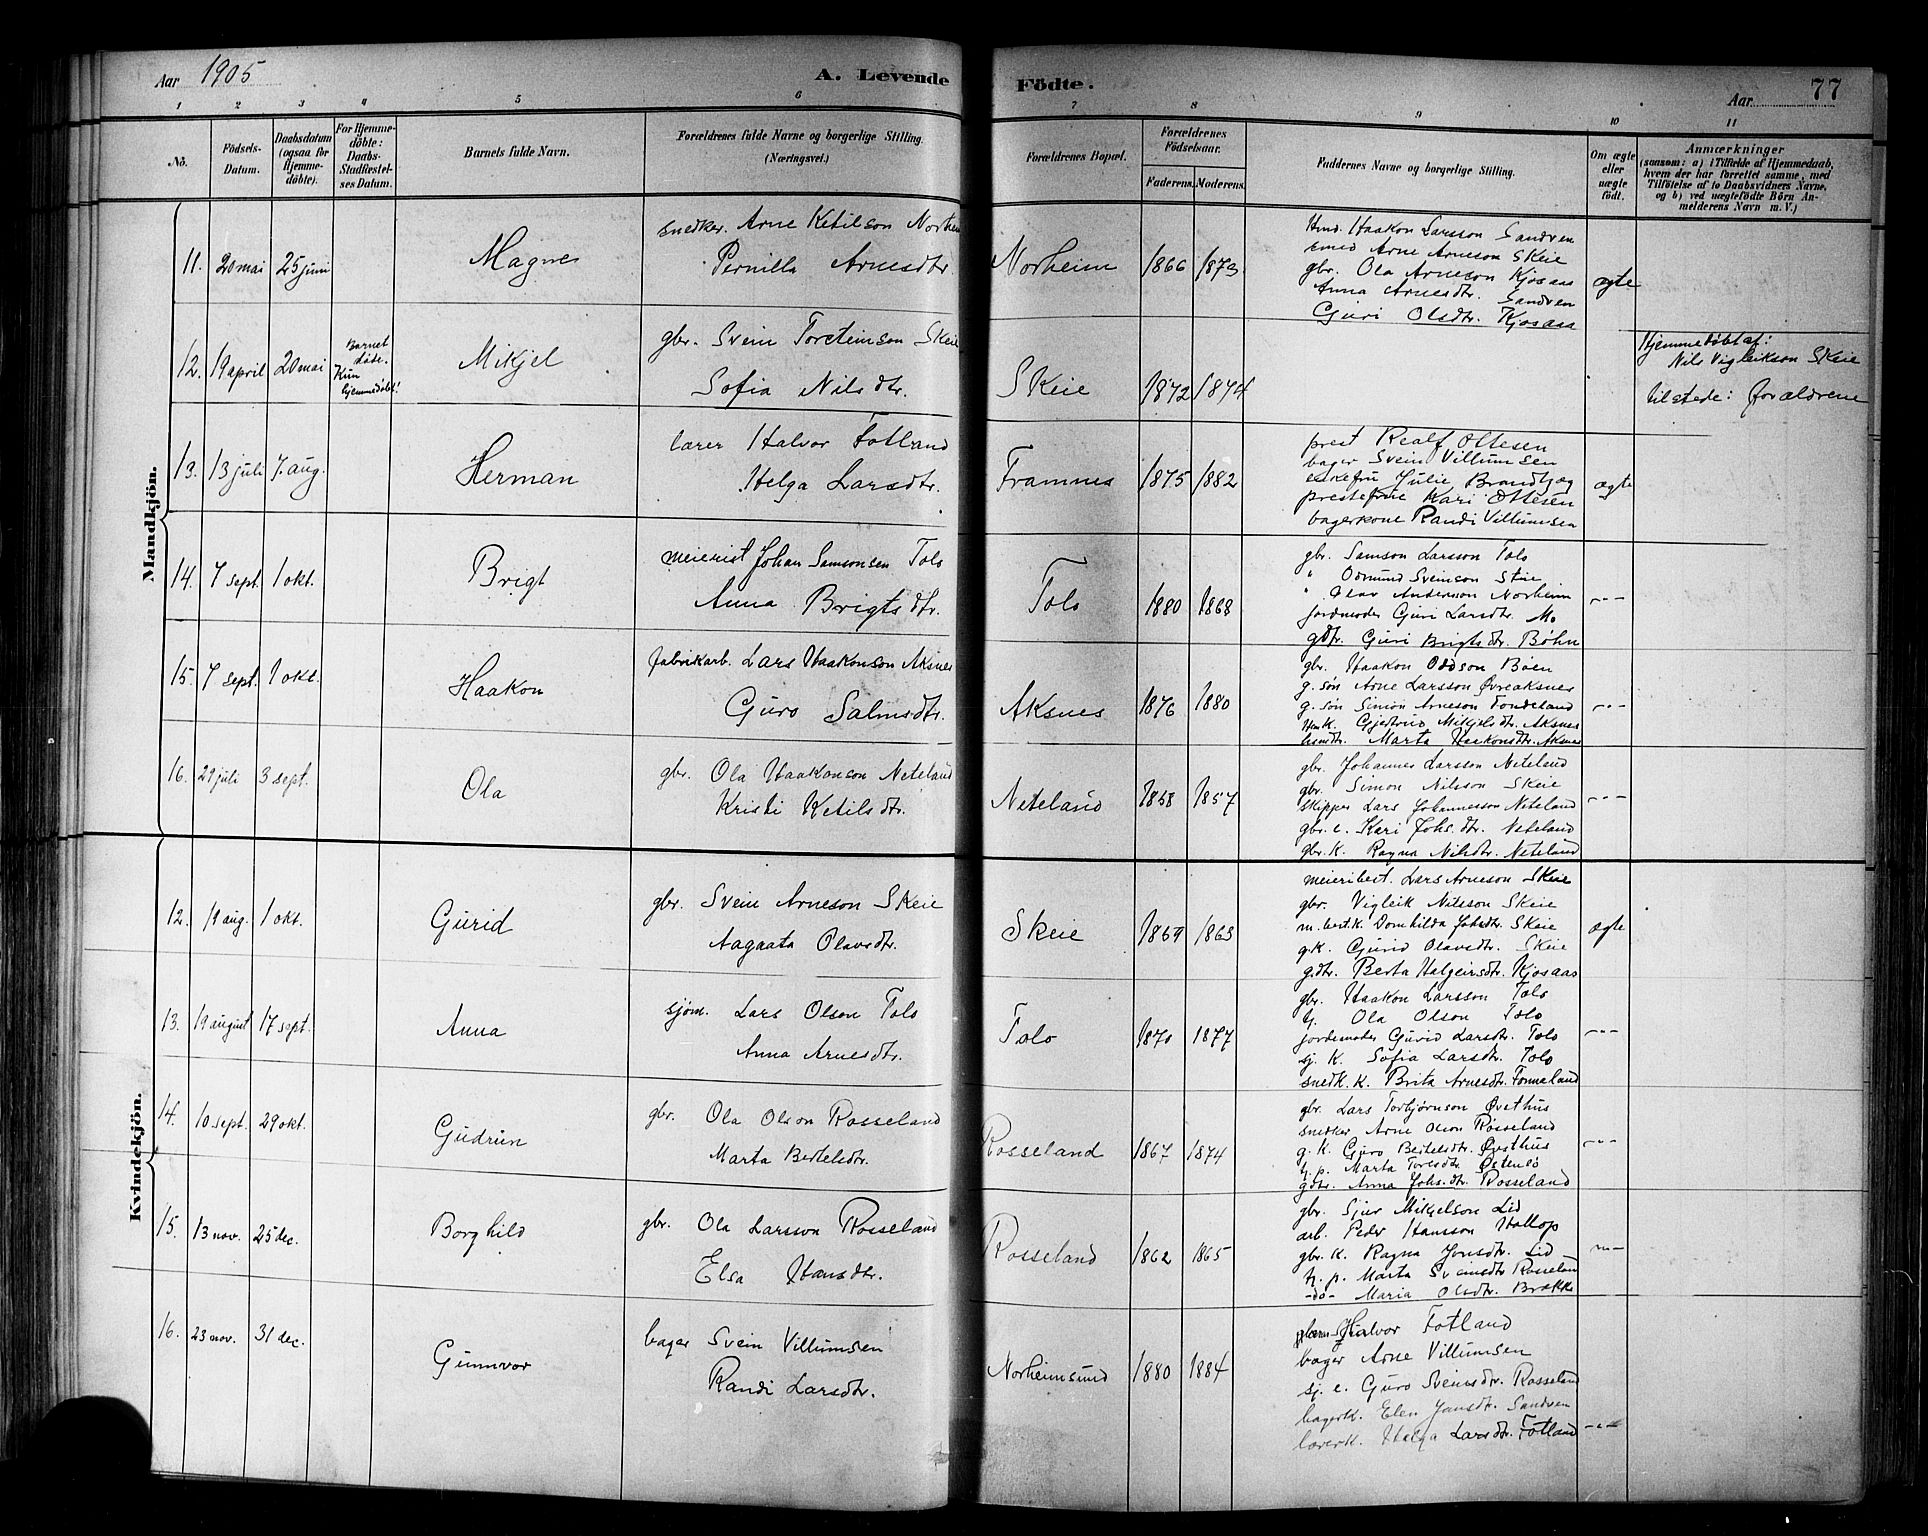 Aar 1905
A. Levende Födte.
Aar 77
1 2 3 4 5 6 7 8 9 10 11
Nö.
Födsels-Datum.
Daabsdatum (ogsaa for Hjemme-döbte).
For Hjemme-döbte: Daabs-Stadfæstel-ses Datum.
Barnets fulde Navn.
Forældrenes fulde Navne og borgerlige Stilling. (Næringsvei.)
Forældrenes Bopæl.
Forældrenes Födselsaar.
Faderens. Moderens.
Faddernes Navne og borgerlige Stilling.
Om ægte eller uægte födt.
Anmærkninger
(saasom: a) i Tilfælde af Hjemmedaab,
hvem der har forrettet samme, med
Tilföielse af to Daabsvidners Navne,
og b) ved uægtefödte Börn An-
melderens Navn m. V.)
Mandkjön.
11. 20 mai 25 juni Magnes
snedker. Arne Ketilson Norheim
Pernilla Arnesdtr.
Norheim 1866 1873
Hmd. Haakon Larsson Sandven
smed Arne Arneson Skeie
gbr. Ola Arneson Kjosaas
Anna Arnesdtr. Sandven
Guri Olsdtr. Kjosaas
ægte
12. 19 april 20 mai
Barnet
døde.
Kun
hjemmedøbt!
Mikjel
gbr. Svein Torsteinson Skeie
Sofia Nilsdtr.
Skeie 1872 1874
Hjemmedøbt af:
Nils Vigleikson Skeie
tilstede: forældrene
13. 13 juli 7. aug. Herman
lærer Halvor Fotland
Helga Larsdtr.
Framnes 1875 1882
prest Realf Ottesen
bager Svein Villumsen
enkefru Julie Brandtzæg
prestefrue Kari Ottesen
bagerkone Randi Villumsen
ægte
14. 7 sept. 1 okt. Brigt
meierist Johan Samsonsen Tolo
Anna Brigtsdtr.
Tolo 1880 1868
gbr. Samson Larsson Tolo
" Odmund Sveinson Skeie
" Olav Anderson Norheim
jordmoder Guri Larsdtr. Mo
gdtr. Guri Brigtsdtr. Bøhn
-"-
15. 7 sept. 1 okt. Haakon
fabrikarb. Lars Haakonson Aksnes
Guro Salmsdtr.
Aksnes 1876 1880
gbr. Haakon Oddson Boen
g. søn Arne Larsson Øvreaksnes
g. søn Simon Arneson Tondeland
Hmk. Gjertrud Mikjelsdtr. Aksnes
Marta Haakonsdtr. Aksnes
-"-
16. 29 juli 3 sept. Ola
gbr. Ola Haakonson Neteland
Kristi Ketilsdtr.
Neteland 1858 1857
gbr. Johannes Larsson Neteland
gbr. Simon Nilsson Skeie
skipper Lars Johannesson Neteland
gbr. e. Kari Johs.dtr. Neteland
gbr. K. Ragna Nilsdtr. Neteland
-"-
Kvindekjön.
12. 19 aug. 1 okt. Gurid
gbr. Svein Arneson Skeie
Aagaata Olavsdtr.
Skeie 1869 1863
meieribest. Lars Arneson Skeie
gbr. Vigleik Nilsson Skeie
m. best. k. Domhilda Johsdtr. Skeie
g.k. Gurid Olavsdtr. Skeie
gdtr. Berta Halgeirsdtr. Kjosaas
ægte
13. 19 august 17 sept. Anna
sjøm. Lars Olson Tolo
Anna Arnesdtr.
Tolo 1870 1877
gbr. Haakon Larsson Tolo
Ola Olson Tolo
jordemoder Gurid Larsdtr. Tolo
sj. K. Sofia Larsdtr. Tolo
snedk. K. Brita Arnesdtr. Tonneland
-"-
14. 10 sept. 29 okt. Gudrun
gbr. Ola Olson Rosseland
Marta Bertelsdtr.
Rosseland 1867 1874
gbr. Lars Torbjørnson Øvsthus
snedker Arne Olson Rosseland
g. K. Guro Bertelsdtr. Øvsthus
t. p. Marta Toresdtr. Østensø
gdtr. Anna Johs.dtr. Rosseland
-"-
15. 13 nov. 25 dec. Borghild
gbr. Ola Larsson Rosseland
Elsa Hansdtr.
Rosseland 1862 1865
gbr. Sjur Mikjelson Lid
arb. Peder Hansson Hallop
gbr. K. Ragna Jonsdtr. Lid
t. p. Marta Sveinsdtr. Rosseland
-do- Maria Olsdtr. Brakke
-"-
16. 23 nov. 31 dec. Gunnvor
bager Svein Villumsen
Randi Larsdtr.
Norheimsund 1880 1884
Halvor Fotland
bager Arne Villumsen
sj. e. Guro Sveinsdtr. Rosseland
bagerk. Elen Jonsdtr. Sandven
lærerk. Helga Larsdtr. Fotland
-"-